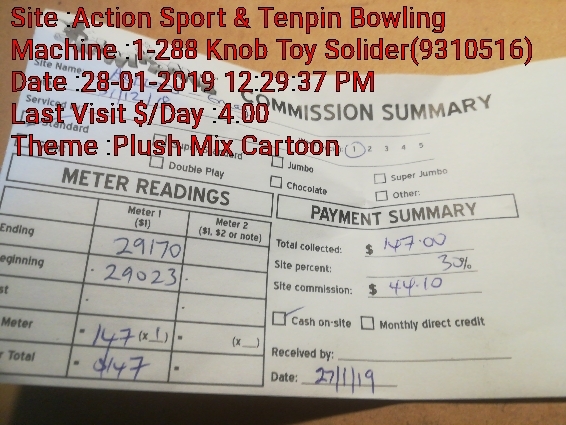 Site :Action Sport & Tenpin Bowling
Machine :1-288 Knob Toy Solider(9310516)
Date :28-01-2019 12:29:37 PM
Last Visit $/Day :4.00
Theme :Plush Mix Cartoon
Site Name
COMMISSION SUMMARY
Serviced
Standard
1 2 3 4 5
Double Play
Jumbo
Chocolate
Super Jumbo
Other:
METER READINGS
Meter 1 ($1)
Meter 2 ($1, $2 or note)
Ending 29170
eginning 29023
st
Meter = 147 (x 1) = (x )
r Total = $147 =
PAYMENT SUMMARY
Total collected: $ 147.00
Site percent: 30%
Site commission: $ 44.10
Cash on-site Monthly direct credit
Received by:
Date: 27/1/19